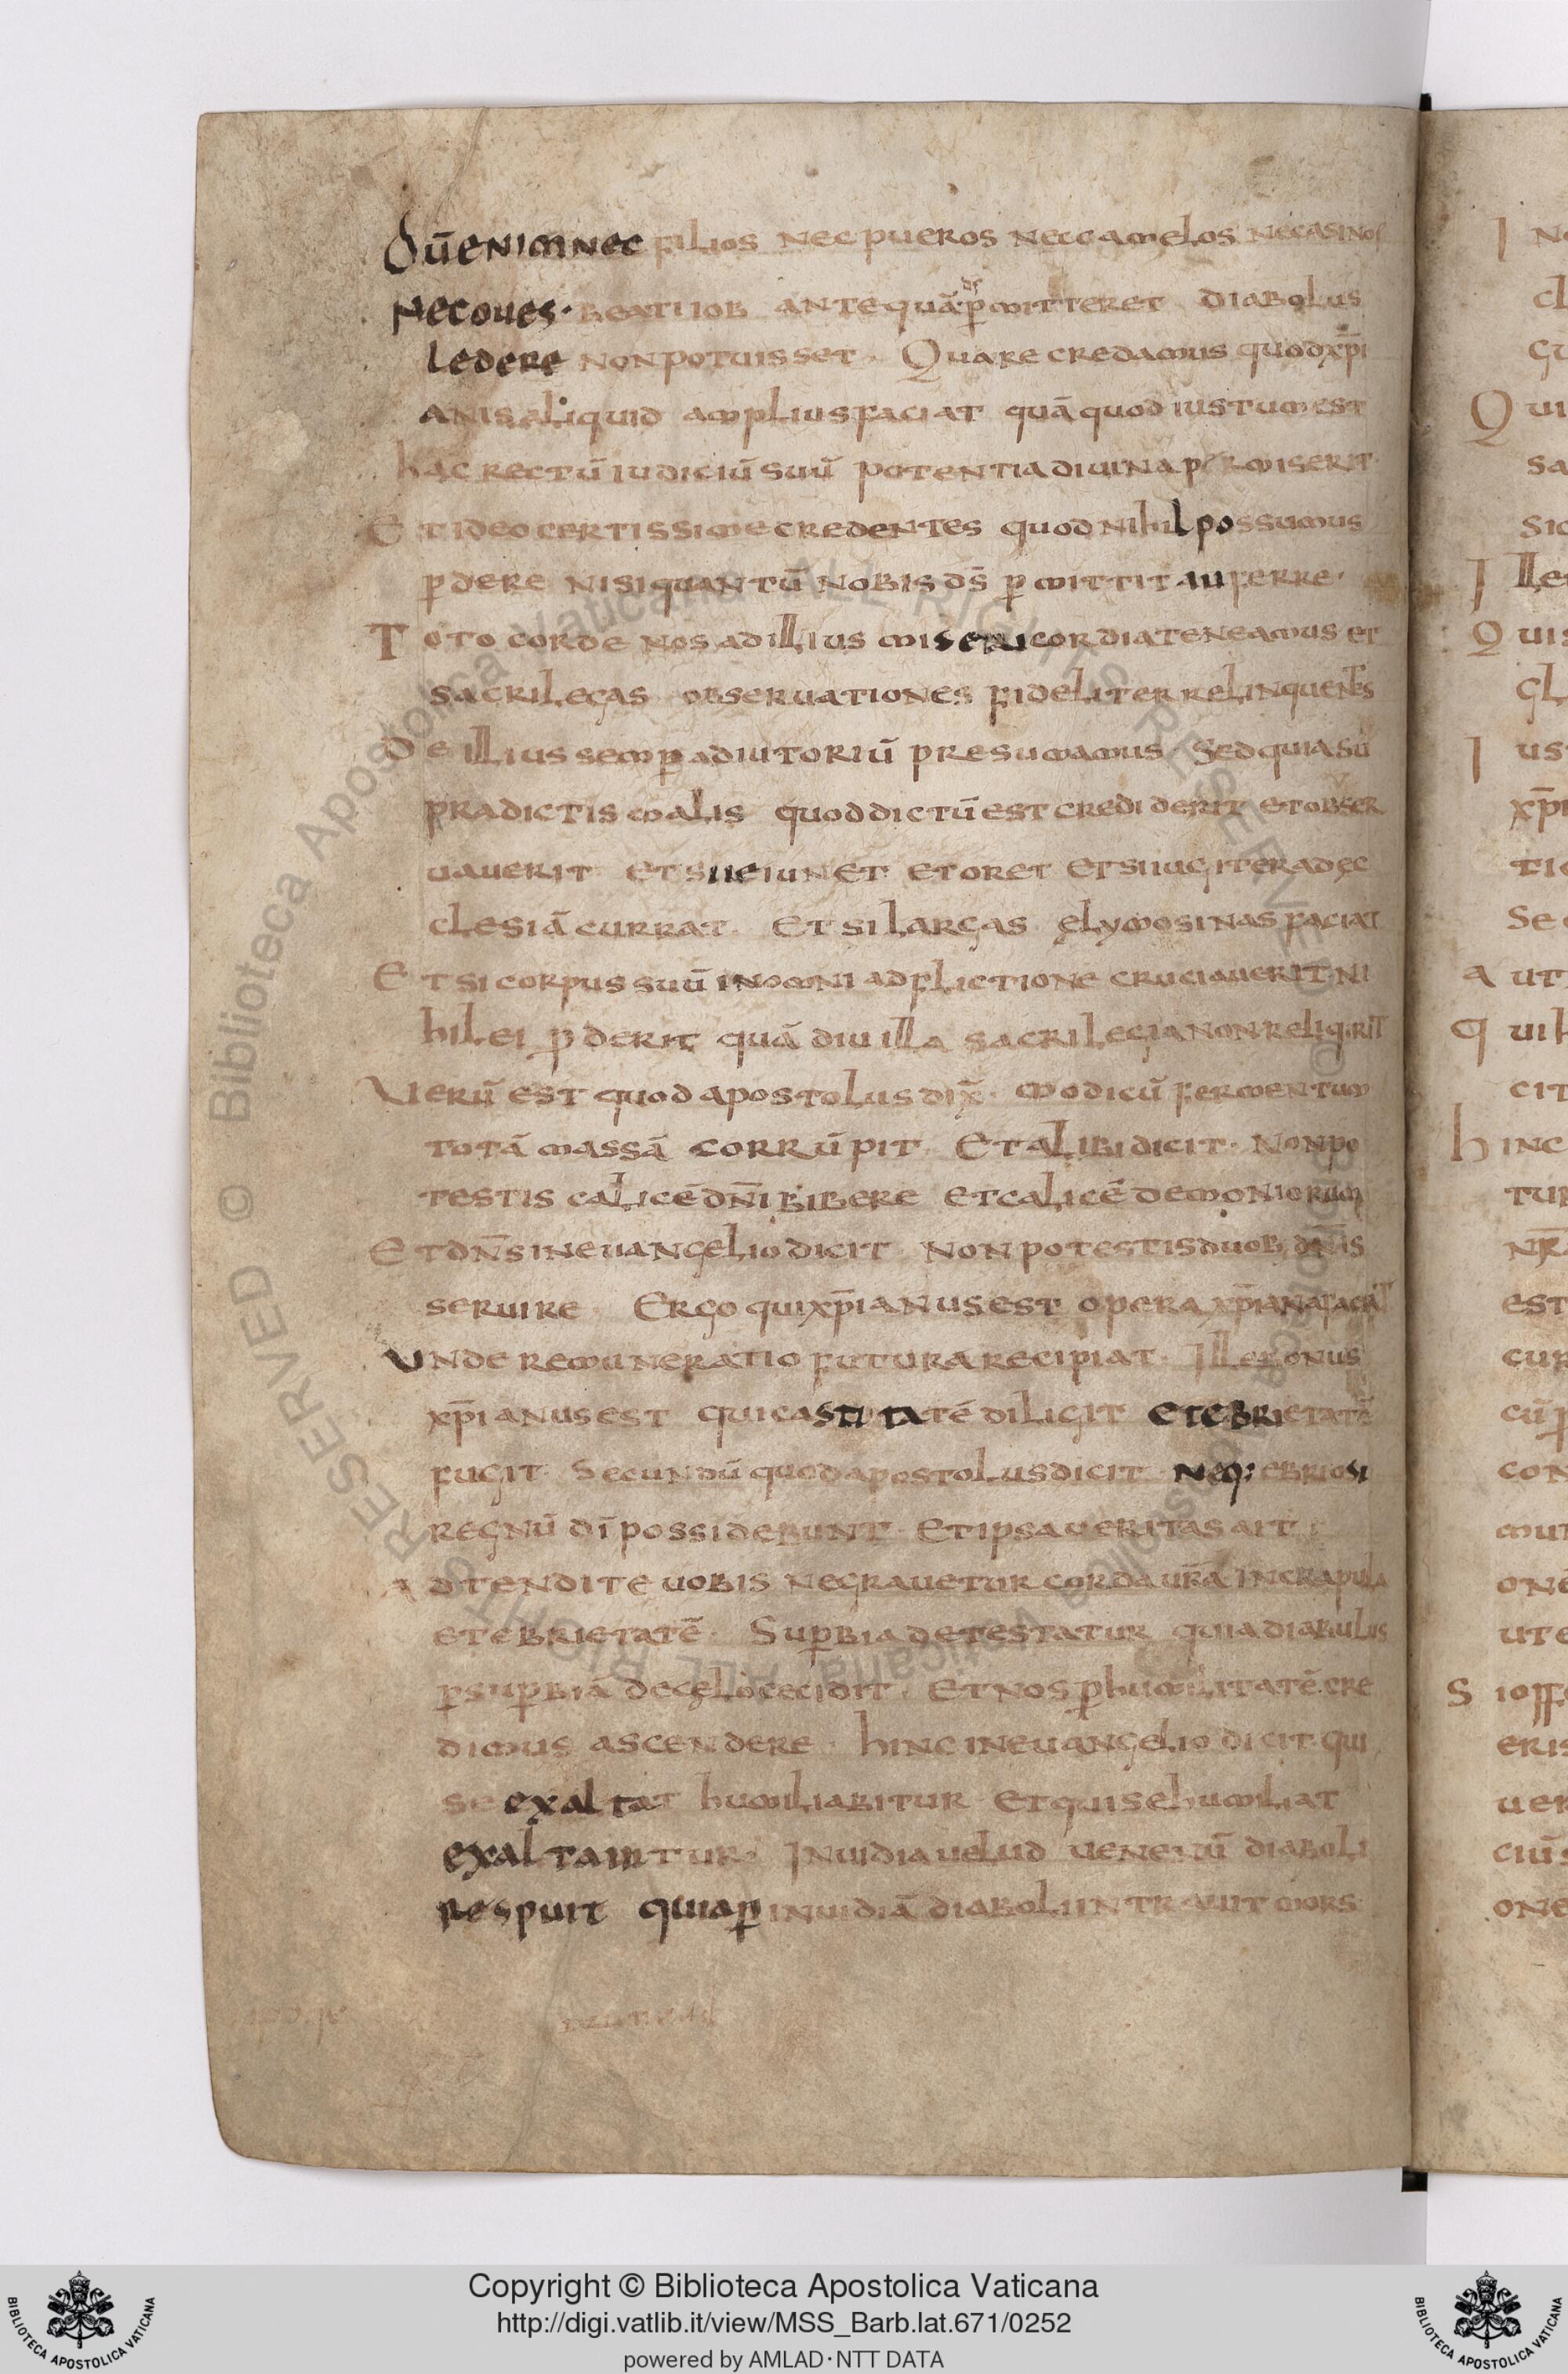 Dū enim nec filios nec pueros nec camelos nec asinos
nec oues · beati iob antequā d̄s p̄mitteret diabolus
ledere non potuisset · Quare credamus quod xp̄i
anis aliquid amplius faciat quā quod iustum est
hac rectū iudiciū suū potentia diuina permiserit
Et ideo certissime credentes quod nihil possumus
p̄dere nisi quantū nobis d̄s p̄mittit auferre ·
Toto corde nos ad illius misericordia teneamus et
sacrilegas obseruationes fideliter relinquentes
De illius semp̄ adiutoriū presumamus · Sed quia sū
pradictis malis quod dictū est crediderit et obser
uauerit et si ieiunet et oret et si iugiter ad ęc
clesiā currat · Et si largas ęlymosinas faciat
Et si corpus suū in omni adflictione cruciauerit · ni
hil ei p̄derit quā diu illa sacrilegia non reliq̇rit
Uerū est quod apostolus dix̄ · modicū fermentum
totā massā corrūpit · Et alibi dicit · Non po
testis calicē dn̄i bibere et calicē demoniorum
Et dn̄s in euangelio dicit · Non potestis duob; dn̄is
seruire · Ergo qui xp̄ianus est opera xp̄iana faciat
Unde remuneratio futura recipiat · Ille bonus
xp̄ianus est qui castitatē diligit et ebrietatē
fugit · Secundū quod apostolus dicit · Neq; ebriosi
regnū dī possidebunt · Et ipsa ueritas ait ·
Adtendite uobis ne grauetur corda urā in crapula
et ebrietatē · Sup̄bia detestatur quia diabulus
p̄ sup̄biā de cęlo cecidit · Et nos p̄ humilitatē cre
dimus ascendere · hinc in euangelio dicit · qui
se exaltat humiliabitur et qui se humiliat
exaltabitur · Inuidia uelud uenenū diaboli
respuit quia p̄ inuidiā diaboli intrauit mors
Copyright © Biblioteca Apostolica Vaticana
http://digi.vatlib.it/view/MSS_Barb.lat.671/0252
powered by AMLAD·NTT DATA